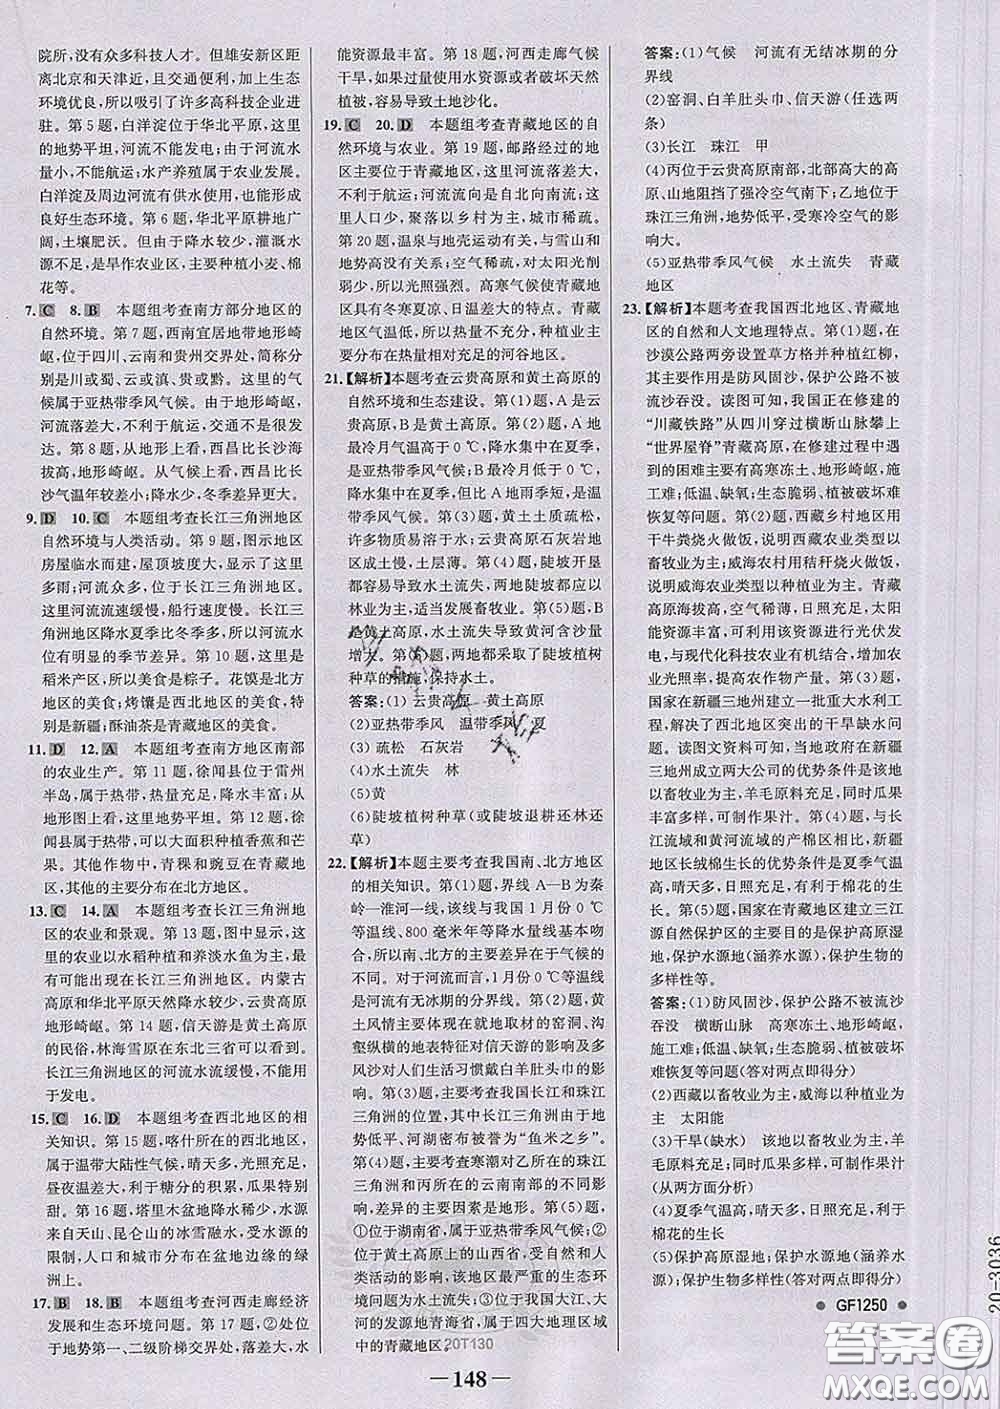 院所,没有众多科技人才。但雄安新区距
离北京和天津近,且交通便利,加上生态
环境优良,所以吸引了许多高科技企业进
驻。第 5 题,白洋淀位于华北平原,这里
的地势平坦,河流不能发电;由于河流水
量小,不能航运;水产养殖属于农业发展。
白洋淀及周边河流有供水使用,也能形成
良好生态环境。第 6 题,华北平原耕地广
阔,土壤肥沃。但由于降水较少,灌溉水
源不足,是旱作农业区,主要种植小麦、棉
花等。
7. C 8. B 本题组考查南方部分地区的
自然环境。第 7 题,西南宜居地带地形崎
岖,位于四川、云南和贵州交界处,简称分
别是川或蜀、云或滇、贵或黔。这里的气
候属于亚热带季风气候。由于地形崎岖,
河流落差大,不利于航运,经济、交通欠发
达。第 8 题,从地形上看,西昌比长沙海
拔高,地形崎岖。从气候上看,西昌比长
沙气温年较差小;降水少,冬季差异更大。
9. D 10. C 本题组考查长江三角洲地区
自然环境与人类活动。第 9 题,图示地区
房屋临水而建,屋顶坡度大,显示了这里
多雨;河流众多,位于长江三角洲地区。
这里河流流速缓慢,船行速度慢。长江三
角洲地区降水夏季比冬季多,所以河流水
位有明显的季节差异。第 10 题,这里是
水稻产区,所以美食是粽子。花馍是黄土
高原的美食;烤馕是西北地区的美食,特
别是新疆;酥油茶是青藏地区的美食。
11. D 12. A 本题组考查南方地区南部
的农业生产。第 11 题,徐闻县位于雷州
半岛,属于热带,热量充足,降水丰富;从
地形图上看,这里地势平坦。第 12 题,徐
闻县位于热带,可以大面积种植香蕉和芒
果。其他作物中,青稞和豌豆在青藏地
区,其他的主要分布在北方地区。
13. C 14. A 本题组考查长江三角洲地
区的农业和景观。第 13 题,图中显示,这
里的农业以水稻种植和养淡水鱼为主,最
有可能出现在长江三角洲地区。内蒙古
高原和华北平原天然降水少,云贵高原
地形崎岖。第 14 题,信天游是黄土高原
的民俗,林海雪原在东北三省可以看到。
长江三角洲地区的河流水流缓慢,不能用
于发电。
15. C 16. D 本题组考查西北地区的相
关知识。第 15 题,喀什所在的西北地区,
属于温带大陆性气候,晴天多,光照充足,
昼夜温差大,利于糖分的积累,瓜果特别
甜。第 16 题,塔里木盆地降水稀少,水源
来自天山、昆仑山的冰雪融水,受水源的
限制,人口和城市分布在盆地边缘的绿
洲上。
17. B 18. B 本题组考查河西走廊经济
发展和生态环境问题。第 17 题,②处位
于地势第一、二级阶梯交界处,落差大,水
能资源最丰富。第 18 题,河西走廊气候
干旱,如果过量使用水资源或破坏天然
植被,容易导致土地沙化。
19. C 20. D 本题组考查青藏地区的自
然环境与农业。第 19 题,邮路经过的地
区,这里地形崎岖,海拔高,河流落差大,
不利于航运;河流流向是自北向南流;这
里人口少,聚落以乡村为主,城市稀疏。
第 20 题,温泉与地壳运动有关,与雪山和
地势高没有关系;空气稀薄,对太阳光削
弱少,所以光照强烈。高寒气候使青藏地
区具有冬寒夏凉、日温差大的特点。青藏
地区气温低,所以热量不充分,种植业主
要分布在热量相对充足的河谷地区。
21. 【解析】本题考查云贵高原和黄土高原的
自然环境和生态建设。第(1)题,A 是云
贵高原,B 是黄土高原。第(2)题,A 地
最冷月气温高于 0 ℃,降水集中在夏季,
是亚热带季风气候;B 最冷月低于 0 ℃,
降水集中在夏季,但比 A 地雨季短,是温
带季风气候。第(3)题,黄土土质疏松,
许多物质易溶于水;云贵高原石灰岩地
区成土慢,土层薄。第(4)题,陡坡开垦
都容易导致水土流失,两地陡坡都应以
林业为主,适当发展畜牧业。第(5)题,B
是黄土高原,水土流失导致黄河含沙量
增大。第(6)题,两地都采取了陡坡植树
种草的措施,保持水土。
答案:(1)云贵高原 黄土高原
(2)亚热带季风 温带季风 夏
(3)疏松 石灰岩
(4)水土流失 林
(5)黄
(6)陡坡植树种草(或陡坡退耕还林还
草)
22. 【解析】本题主要考查我国南、北方地区
的相关知识。第(1)题,界线 A—B 为秦
岭—淮河一线,该线与我国 1 月份 0 ℃
等温线、800 毫米年等降水量线基本吻
合,所以南、北方的主要差异在于气候的
不同。对于河流而言,1 月份 0 ℃等温线
是河流有无冰期的分界线。第(2)题,黄
土风情主要体现在就地取材的窑洞、沟
壑纵横的地表特征对信天游的影响及多
风沙对人们生活习惯戴白羊肚头巾的影
响。第(3)题,主要考查我国长江和珠江
三角洲的位置,其中长江三角洲由于地
势低平、河湖密布被誉为“鱼米之乡”。
第(4)题,主要考查寒潮对乙所在的珠江
三角洲和丙所在的云南南部的不同影
响,差异的主要原因是地形。第(5)题,
①位于湖南省,属于亚热带季风气候;②
位于黄土高原上的山西省,受自然和人
类活动的影响,该地区最严重的生态环
境问题为水土流失;③位于我国大江、大
河的源地青海省,属于四大地理区域中
的青藏地区。
答案:(1)气候 河流有无结冰期的分
界线
(2)窑洞、白羊肚头巾、信天游(任选两
条)
(3)长江 珠江 甲
(4)丙位于云贵高原南部,北部高大的高
原、山地阻挡了强冷空气南下;乙地位于
珠江三角洲,地势低平,受寒冷空气的影
响大。
(5)亚热带季风气候 水土流失 青藏
地区
23. 【解析】本题考查我国西北地区、青藏地
区的自然和人文地理特点。第(1)题,在
沙漠公路两旁设置草方格并种植红柳,
其目的主要是防风固沙,保护公路不被
流沙吞没。读图可知,我国正在修建的
“川藏铁路”从四川穿过横断山脉攀上
“世界屋脊”青藏高原,在修建过程中遇
到的困难主要有高寒冻土、地形崎岖,施
工难;低温、缺氧;生态脆弱,植被破坏难
恢复等问题。第(2)题,西藏乡村地区使
用干牛粪烧火做饭,说明西藏农业类型
以畜牧业为主;威海农村用秸秆烧火做饭,
说明威海农业类型以种植业为主。青藏
高原海拔高,空气稀薄,日照充足,太阳
能资源丰富,可利用该资源进行光伏发
电,与现代化科技农业有机结合,增加农
业光照率,提高农作物产量。第(3)题,
国家在新疆三地州建立一批重大水利工
程,解决了西北地区突出的干旱缺水问
题。读图文资料可知,当地政府在新疆
三地州建立两大公司的优势条件是该地
以畜牧业为主,羊毛原料丰富;瓜果产量
丰富多样,可制作果汁。第(4)题,与
长江流域和黄河流域的产棉区比,新疆
地区长绒棉生长的优势条件是夏季气温
高,晴天多,日照充足,有利于棉花的生
长。第(5)题,国家在青藏地区建立三江
源自然保护区的主要目的是保护高原湿
地,保护水源地(涵养水源),保护生物的
多样性等。
答案:(1)防风固沙,保护公路不被流沙
吞没 横断山脉 高寒冻土、地形崎岖,
施工难;低温、缺氧;生态脆弱,植被破坏
难恢复等问题(答对两点即得分)
(2)西藏以畜牧业为主,威海以种植业为
主 太阳能
(3)干旱(缺水) 该地以畜牧业为主,羊
毛原料充足;瓜果丰富,可制作果汁
(从两方面分析)
(4)夏季气温高,晴天多,日照充足,利于
棉花的生长
(5)保护高原湿地;保护水源地(涵养水
源);保护生物多样性(答对两点即得分)
GF1250
20-3036
20T130
148
答案圈
MXQE.COM